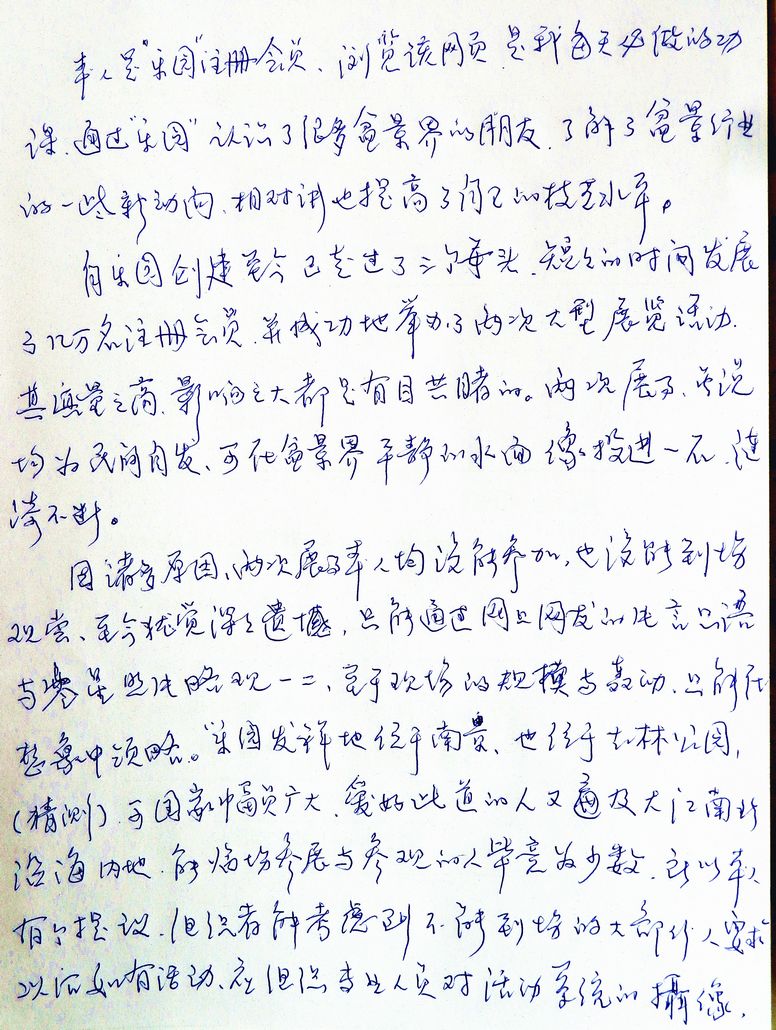 本人是"乐园"注册会员、浏览该网页是我每天必做的功
课、通过"乐园"认识了很多盆景界的朋友、了解了盆景行业
的一些新动向、相对讲也提高了自己的技艺水平。
自乐园创建至今已走过了三个年头、短短的时间发展
了几万名注册会员、并成功地举办了两次大型展览活动、
其质量之高、影响之大都是有目共睹的。两次展子、虽说
均为民间自发、可在盆景界平静的水面像投进一石、涟
漪不断。
因诸多原因、两次展子本人均没能参加、也没能到场
观赏、至今犹觉深深遗憾、只能通过网上网友的片言只语
与零星照片略观一二、至于现场的规模与轰动、只能在
想象中领略。"乐园发祥地位于南景、也位于古林公园、
(猜测)可国家幅员广大、爱好此道的人又遍及大江南北
沿海内地、能临场参展与参观的人毕竟为少数、所以本人
有个提议、组织者能考虑到不能到场的大部份人要求
以后如有活动、应组织专业人员对活动系统的摄像、